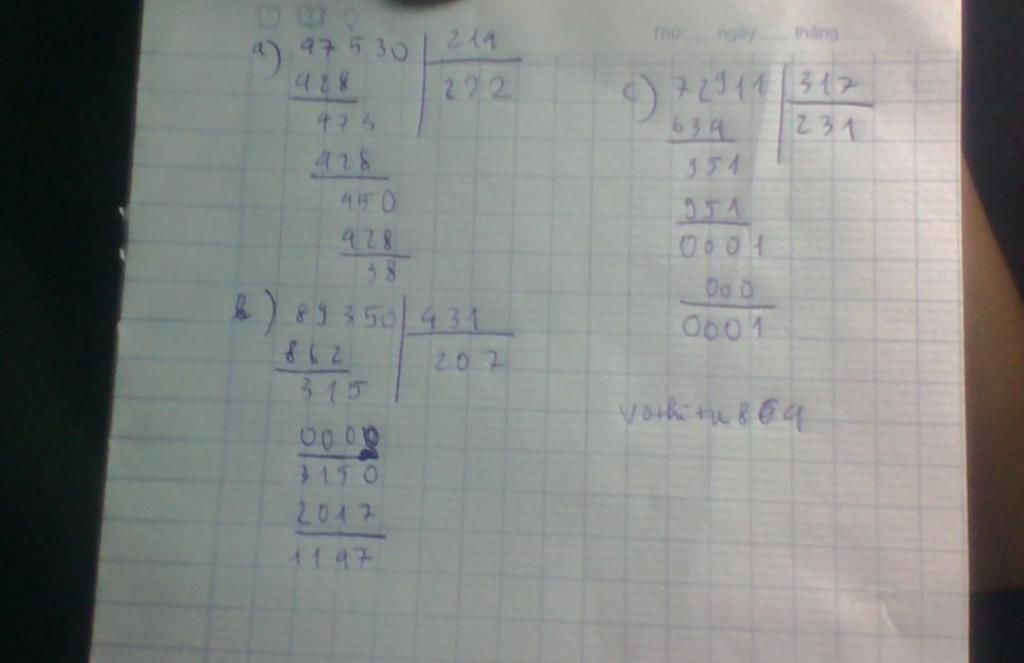 Thứ ngày tháng
a) 47530 214
428 222
473
428
450
428
38
b) 89350 431
862 207
315
0000
3150
2017
1147
c) 72911 317
634 231
951
951
0001
000
0001